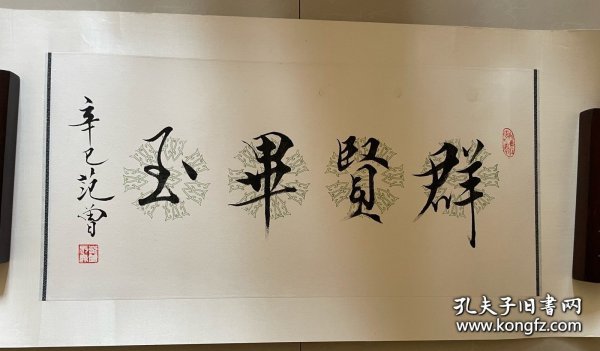 群賢畢至
辛巳范曾
孔夫子旧书网
www.kongfz.com